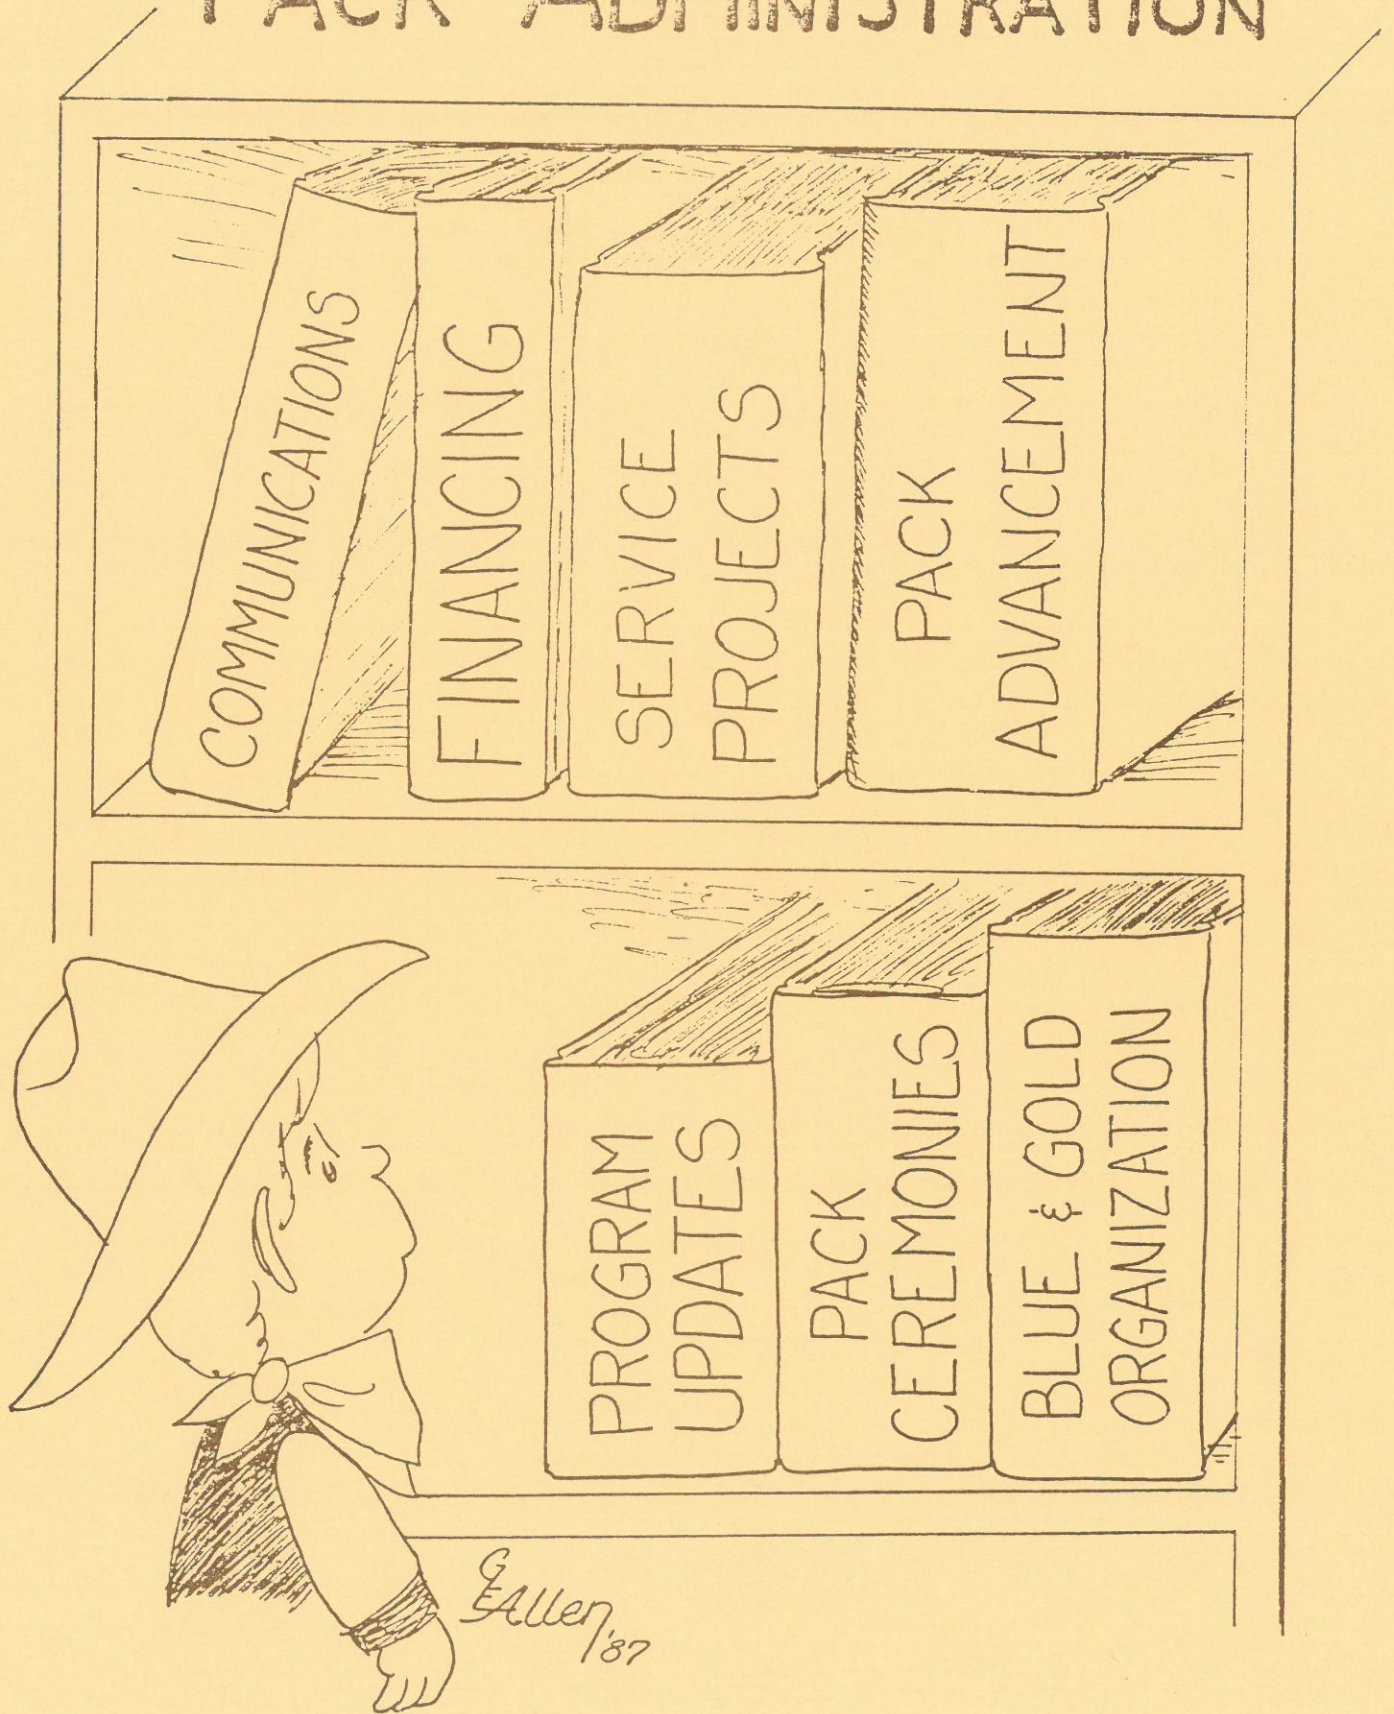 PACK ADMINISTRATION
COMMUNICATIONS
FINANCING
SERVICE
PROJECTS
PACK
ADVANCEMENT
PROGRAM
UPDATES
PACK
CEREMONIES
BLUE & GOLD
ORGANIZATION
GEAllen '87